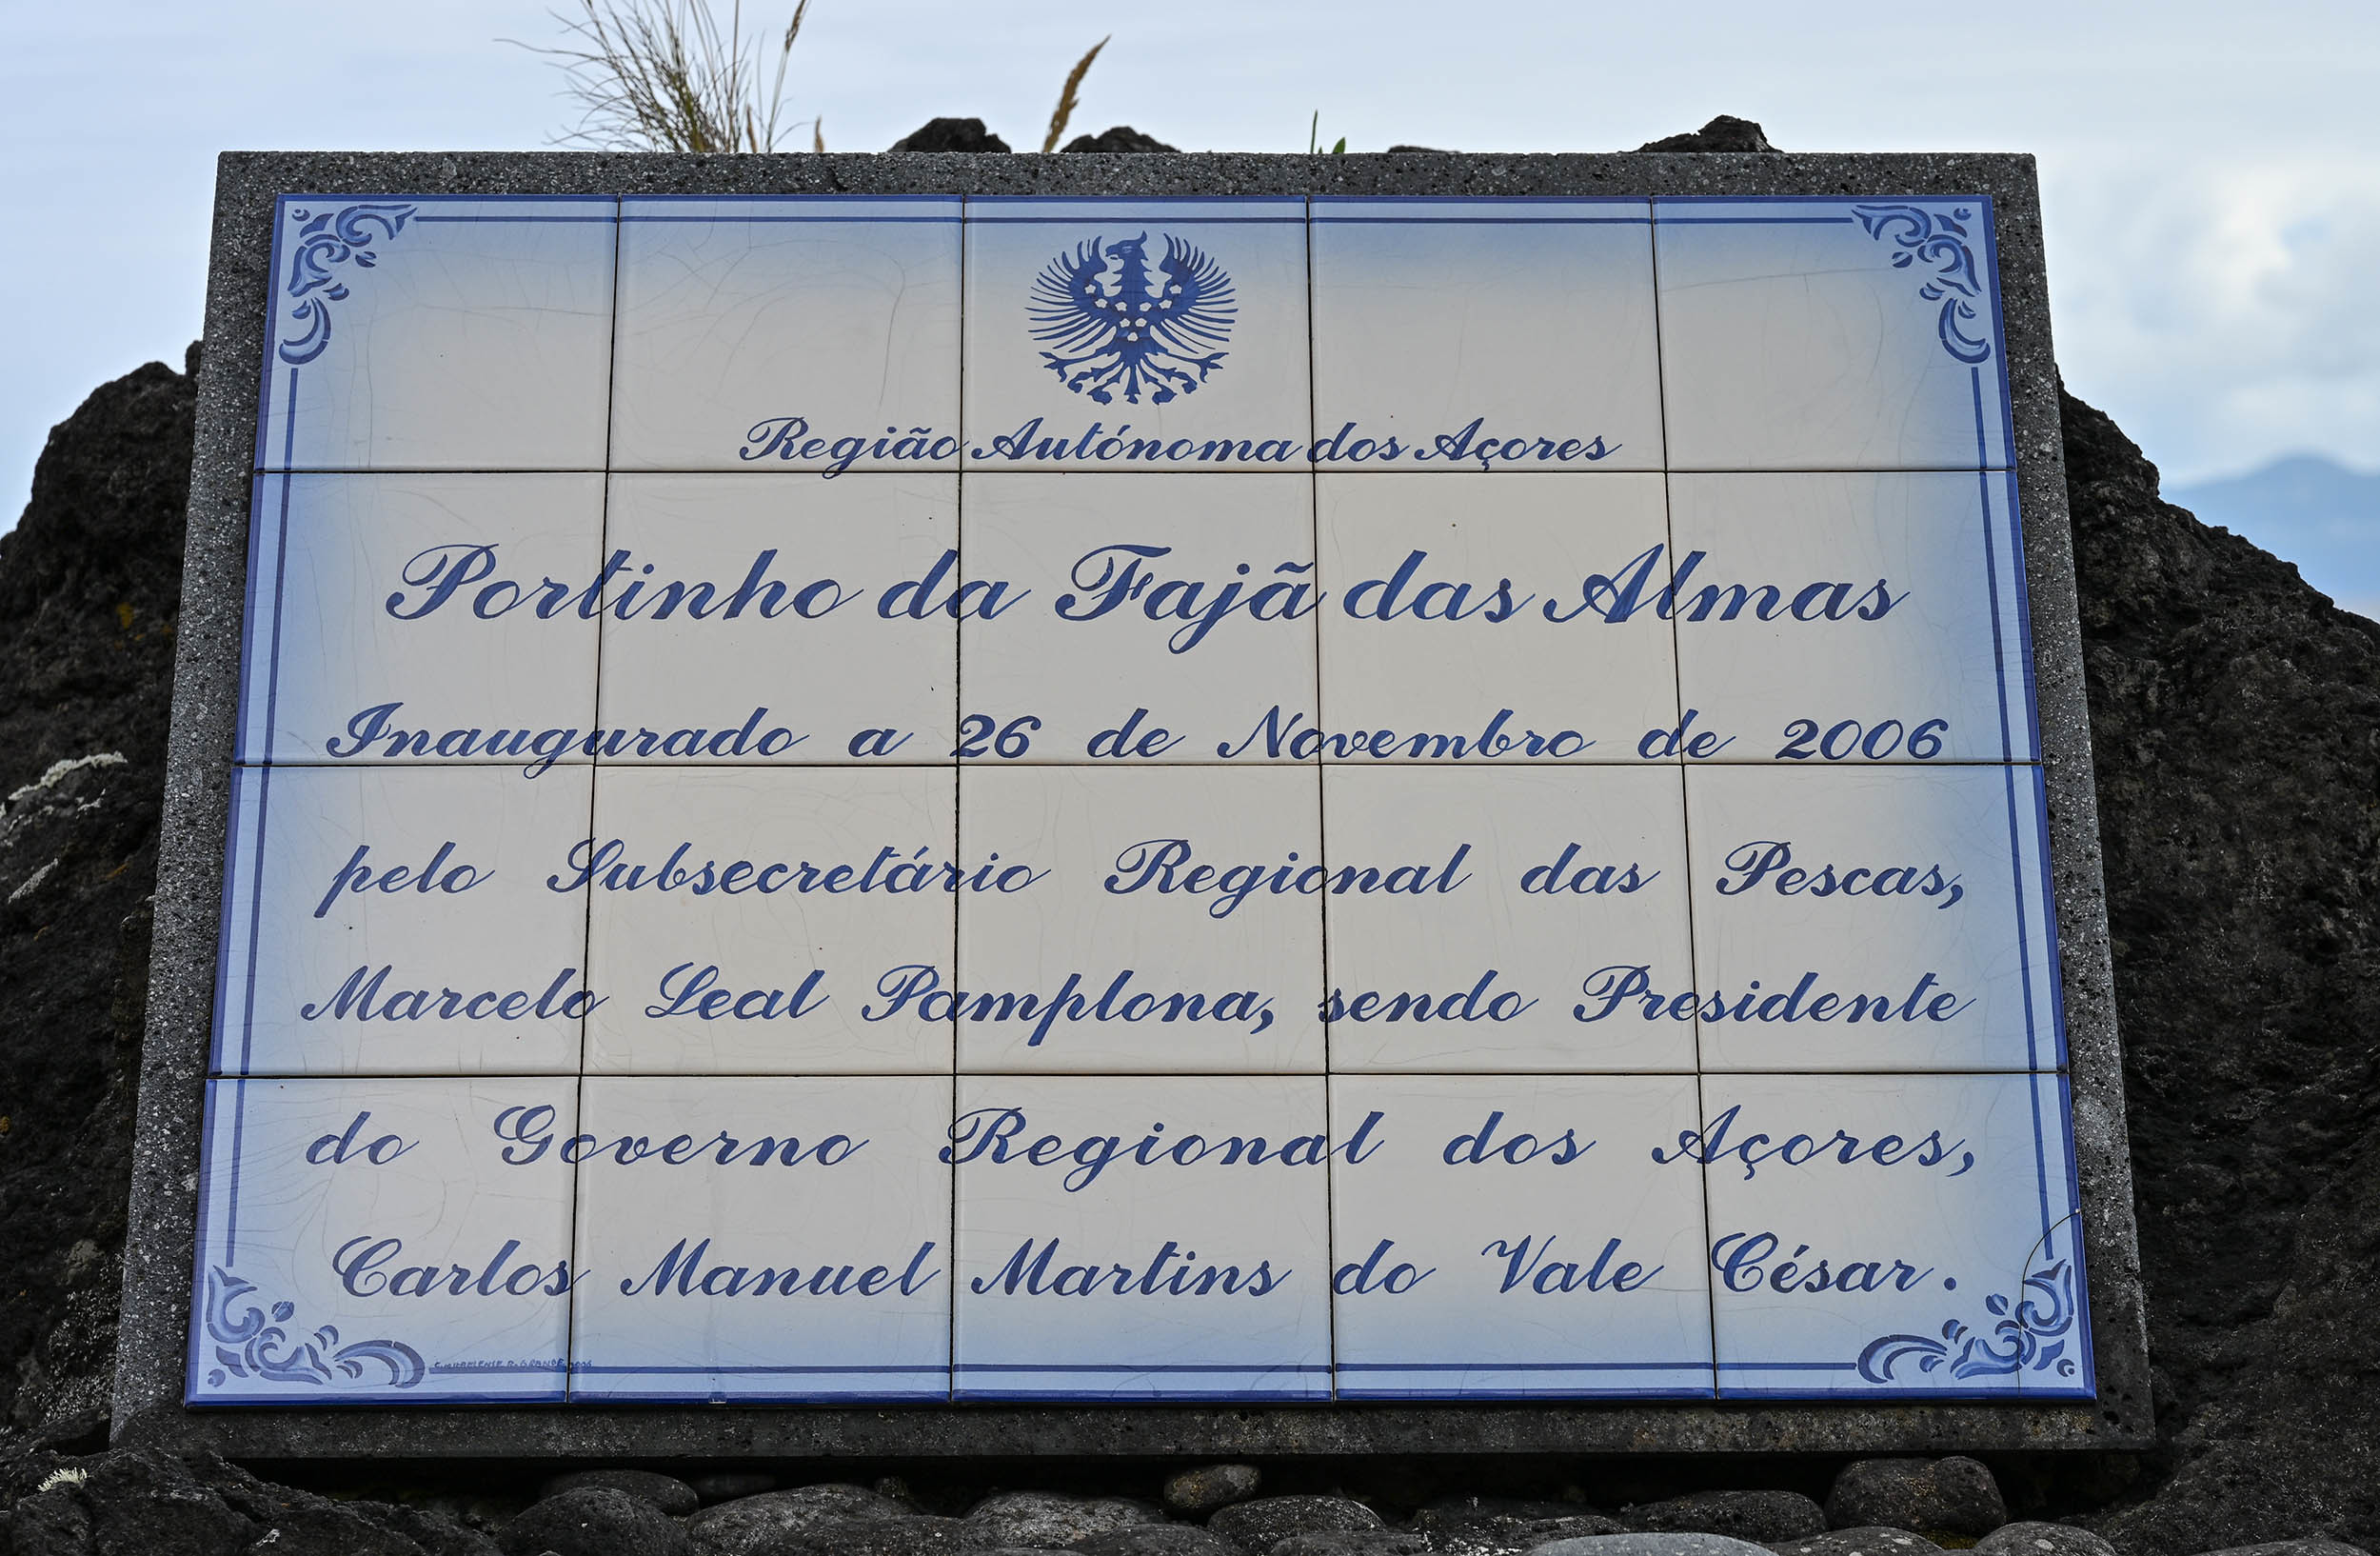 Região Autónoma dos Açores
Portinho da Fajã das Almas
Inaugurado a 26 de Novembro de 2006
pelo Subsecretário Regional das Pescas,
Marcelo Leal Pamplona, sendo Presidente
do Governo Regional dos Açores,
Carlos Manuel Martins do Vale César.
R. GRANDE